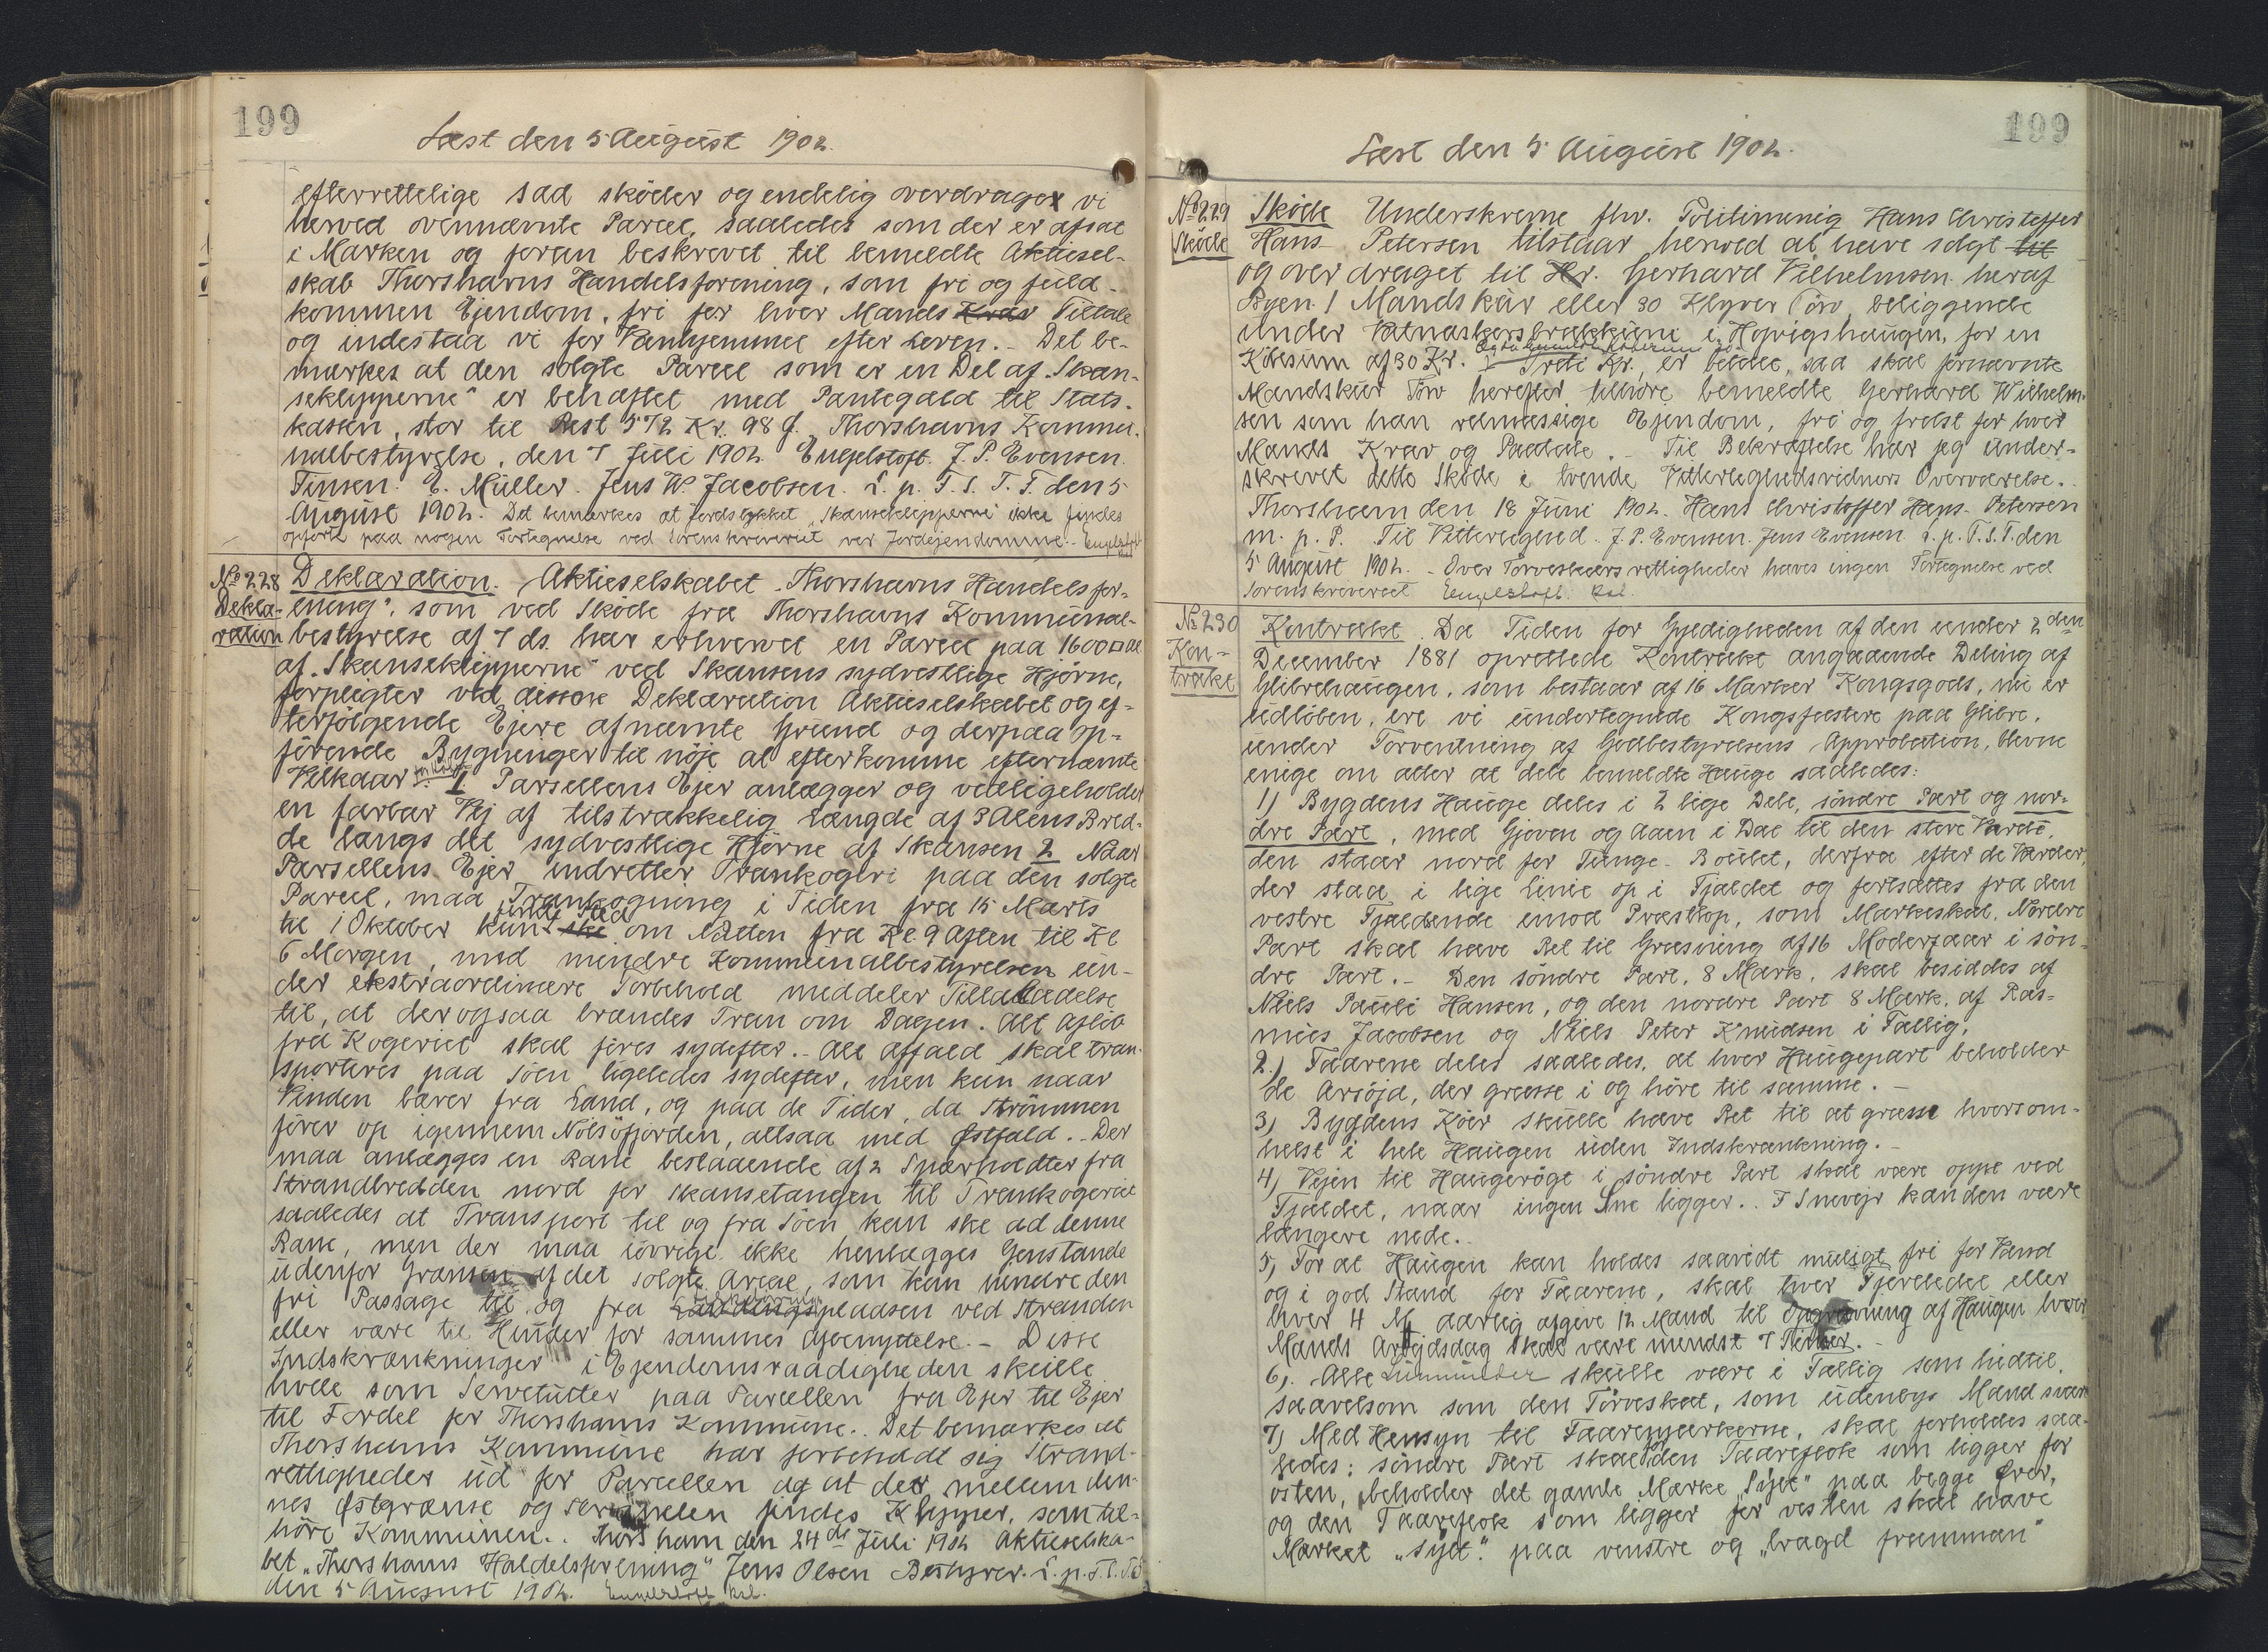 199
Læst den 5 August 1902.
efterrettelige sad skøder og endelig overdrager vi
herved ovennævnte Parcel, saaledes som der er afsat
i Marken og foran beskrevet til bemeldte Aktiesel-
skab Thorshavns Handelsforening, som fri og fuld-
kommen Ejendom, fri for hver Mands Krav Tiltale
og indestaa vi for Vanhjemmel efter Loven. - Det be-
mærkes at den solgte Parcel som er en Del af "Skan-
seklipperne" er behæftet med Pantegæld til Stats-
kassen, stor til Rest 572 Kr. 98 Ø. Thorshavns Kommu-
nalbestyrelse, den 7 Juli 1902. Engelstoft. J. P. Evensen.
E. Müller. Jens W. Jacobsen. L. p. T. S. T. T. den 5
August 1902. Det bemærkes at Jordstykket "Skanseklipperne" ikke findes
opført paa nogen Fortegnelse ved Sorenskriveriet over Jordejendomme. Engelstoft
No 228
Dekla-
ration
Deklaration. Aktieselskabet "Thorshavns Handelsfor-
ening", som ved Skøde fra Thorshavns Kommunal-
bestyrelse af 7 ds. har erhvervet en Parcel paa 1600 □ Al
af "Skanseklipperne" ved Skansens sydvestlige Hjørne,
forpligter ved denne Deklaration Aktieselskabet og ef-
terfølgende Ejere af nævnte Grund og derpaa op-
førende Bygninger til nøje at efterkomme efternævnte
Vilkaar: 1. Parsellens Ejer anlægger og vedligeholder
en farbar Vej af tilstrækkelig Længde af 3 Alens Bred-
de langs det sydvestlige Hjørne af Skansen 2 Naar
Parsellens Ejer indretter Trankogeri paa den solgte
Parcel, maa Trankogning i Tiden fra 15 Marts
til 1 Oktober kun ske finde Sted om Natten fra Kl. 9 Aften til Kl
6 Morgen, med mindre Kommunalbestyrelsen un-
der ekstraordinære Forbehold meddeler Tilladelse
til, at der ogsaa brændes Tran om Dagen. Alt Afløb
fra Kogeriet skal føres sydefter. - Alt Affald skal tran-
sporteres paa Søen ligeledes sydefter, men kun naar
Vinden bærer fra Land, og paa de Tider, da Strømmen
fører op igennem Nolsøfjorden, altsaa med Østfald. - Der
maa anlægges en Bane bestaaende af 2 Spærholdter fra
Strandbredden nord for Skansetangen til Trankogeriet
saaledes at Transport til og fra Søen kan ske ad denne
Bane, men der maa iøvrigt ikke henlægges Genstande
udenfor Grænsen af det solgte Areal, som kan hindre den
fri Passage til og fra Landingspladsen ved Stranden
eller være til Hinder for sammes Afbenyttelse. - Disse
Indskrænkninger i Ejendomsraadigheden skulle
hvile som Servitutter paa Parcellen fra Ejer til Ejer
til Fordel for Thorshavns Kommune. Det bemærkes at
Thorshavns Kommune har forbeholdt sig Strand-
rettigheder ud for Parcellen og at der mellem den-
nes Østgrænse og findes Klipper, som til-
høre Kommunen. Thorshavn den 24de Juli 1902 Aktieselska-
bet "Thorshavns Haldelsforening" Jens Olsen Bestyrer. L. p. T. S. T. T.
den 5 August 1902. Engelstoft Kst.
199
Læst den 5 August 1902.
No 229
Skøde
Skøde Underskrevne fhv. Politimenig Hans Christoffer
Hans- Petersen tilstaar herved at have solgt til
og overdraget til Hr. Gerhard Vilhelmsen heraf
Byen 1 Mandskür eller 30 Klyver Tørv, beliggende
under i Hojvigshaugen, for en
Købesum af 30 Kr. Treti Kr. er betalt, saa skal førnævnte
Mandskür Tørv herefter tilhøre bemeldte Gerhard Wilhelm-
sen som han retmæssige Ejendom, fri og frelst for hver
Mands Krav og Paatale. - Til Bekræftelse har jeg under-
skrevet dette Skøde i tvende Vitterlighedsvidners Overværelse.
Thorshavn den 18 Juni 1902. Hans Christoffer Hans- Petersen
m. p. P. Til Vitterlighed. J. P. Evensen. Jens Evensen. L. p. T. S. T. den
5 August 1902. - Over Tørveskærsrettigheder haves ingen Fortegnelse ved
Sorenskriveriet Engelstoft. Kst.
No 230
Kon-
trakt
Kontrakt. Da Tiden for Gyldigheden af den under 2den
December 1881 oprettede Kontrakt angaaende Deling af
Glibrehaugen, som bestaar af 16 Marker Kongsgods, nu er
udløben, ere vi undertegnede Kongsfæstere paa Glibre,
under Forventning af Godbestyrelsens Approbation, blevne
enige om atter at dele bemeldte Hauge saaledes:
1) Bygdens Hauge deles i 2 lige Dele, søndre Part og nor-
dre Part, med Gjoven og Aaen i Dal til den store Varde,
den staar nord for Tunge- Boulet, derfra efter de Varder,
der staa i lige Linie op i Fjældet og fortsættes fra den
vestre Fjældende imod Præstkop, som Markeskel. Nordre
Part skal have Ret til Græsning af 16 Moderfaar i søn-
dre Part. - Den søndre Part, 8 Mark, skal besiddes af
Niels Pauli Hansen, og den nordre Part 8 Mark, af Ras-
mus Jacobsen og Niels Peter Knudsen i Fællig.
2.) Faarene deles saaledes, at hver Haugepart beholder
de Arsøjd, der græsse i og høre til samme. -
3) Bygdens Køer skulle have Ret til at græsse hvorsom-
helst i hele Haugen uden Indskrænkning. -
4) Vejen til Haugerøgt i søndre Part skal være oppe ved
Fjældet, naar ingen Sne ligger. . I Snevejr kan den være
længere nede. .
5) For at Haugen kan holdes saavidt muligt fri for Vand
og i god Stand for Faarene, skal hver Fjerdedel eller
hver 4 M aarlig afgive 12 Mand til Opgrøvning af Haugen hver
Mands Arbejdsdag skal være mindst 7 Timer. -
6). Alle skulle være i Fællig som hidtil,
saavelsom som den Tørveskat, som udenbys Mænd svare
7) Med Hensyn til Faaremærkerne, skal forholdes saa-
ledes: søndre Part skal for den Faareflok som ligger for
østen, beholder det gamle Mærke "Sÿlt" paa begge Ører,
og den Faareflok som ligger for vesten skal have
Mærket "sÿlt" paa venstre og "bragd framman"